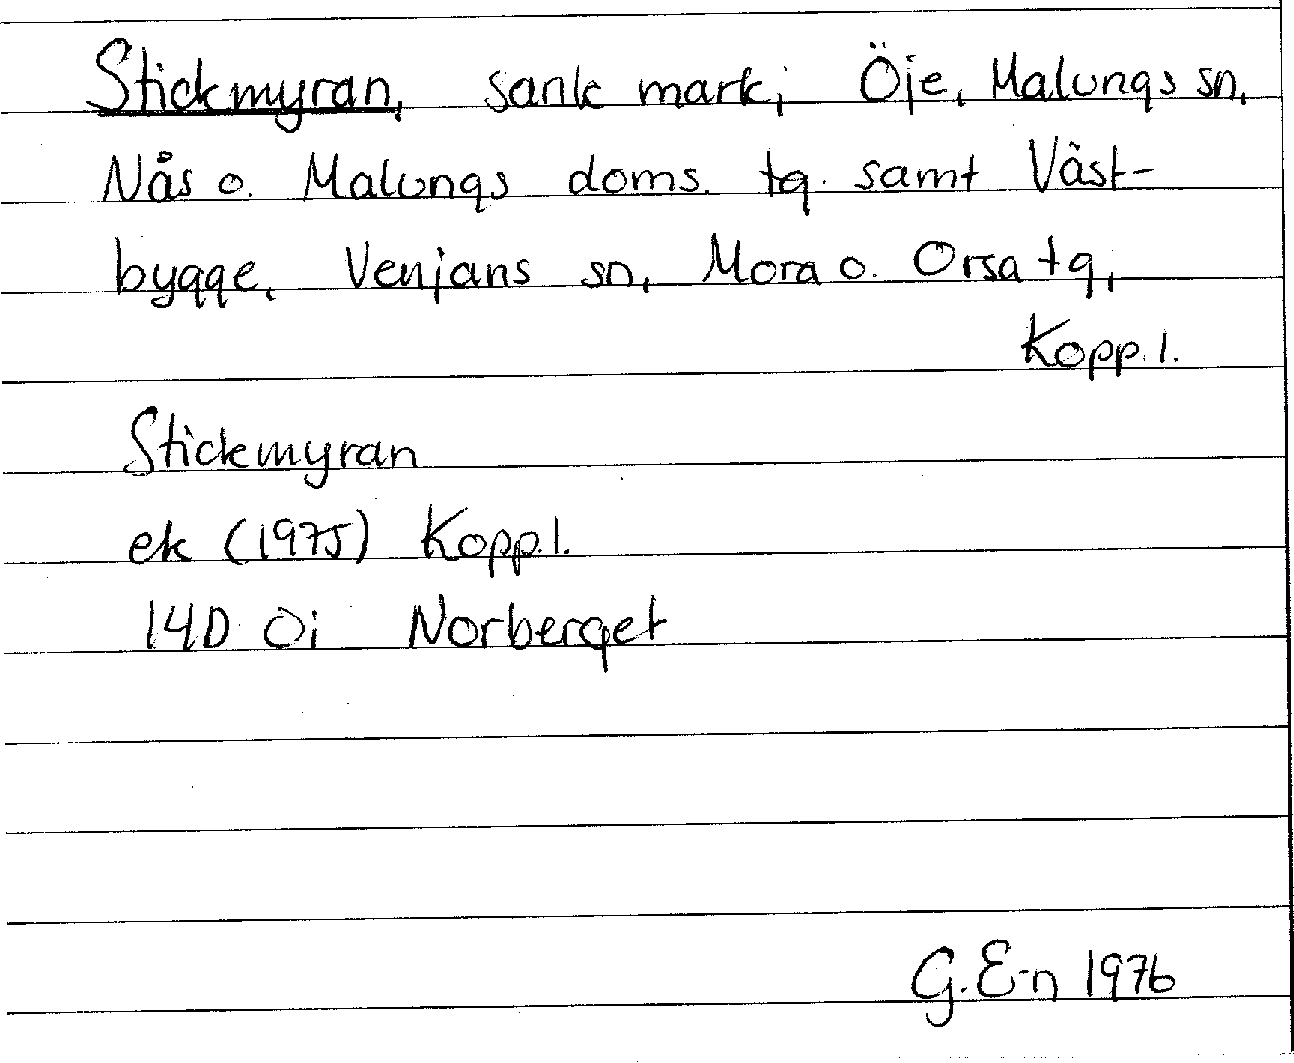 Stickmyran, sank mark, Öje, Malungs sn,
Nås o. Malungs doms. tg. samt Väst-
bygge, Venjans sn, Mora o. Orsa tg,
Kopp.l.
Stickmyran
ek (1975) Kopp.l.
14D 0i Norberget
G.E-n 1976